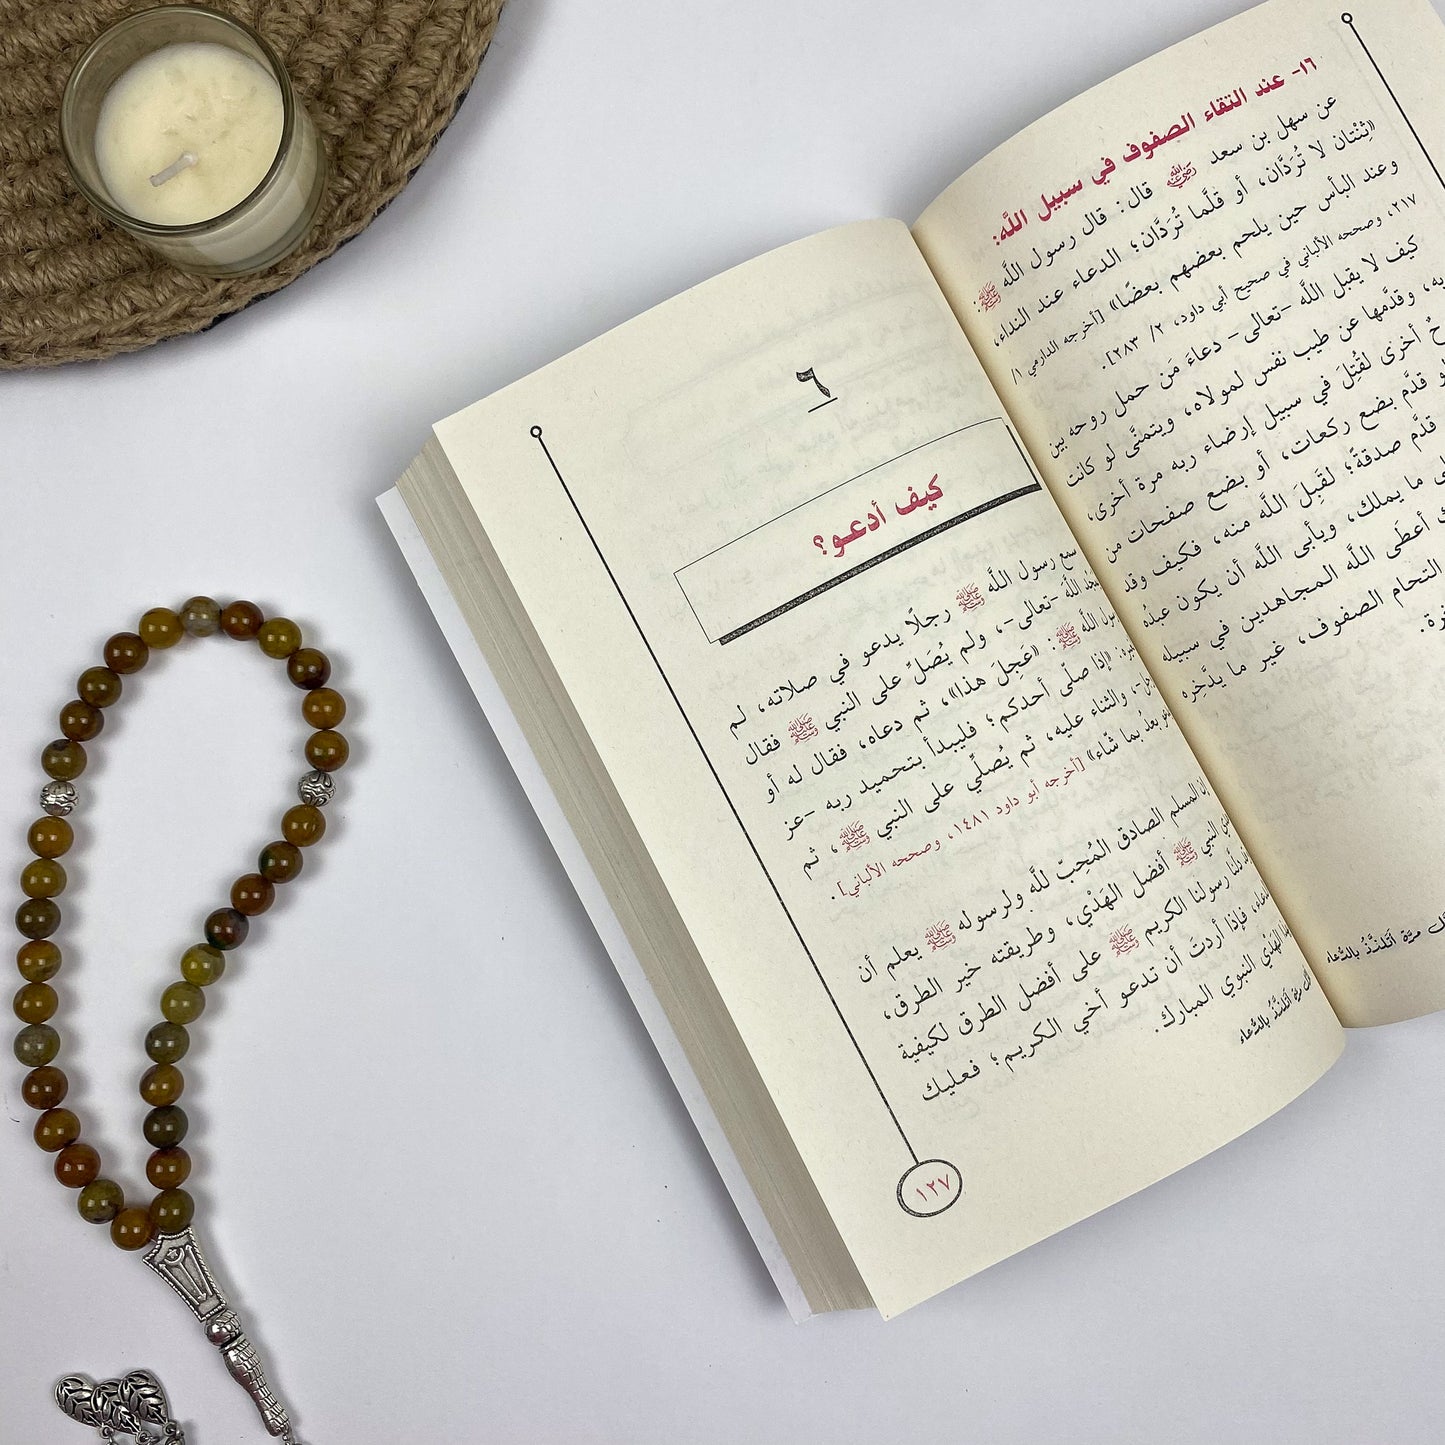 ١٦- عند التقاء الصفوف في سبيل اللَّه:
عن سهل بن سعد رضي الله عنه قال: قال رسول اللَّه ﷺ:
«ثِنْتان لا تُرَدَّان، أو قلَّما تُرَدَّان؛ الدعاء عند النداء،
وعند البأس حين يلحم بعضهم بعضًا» [أخرجه الدارمي ١/
٢١٧، وصححه الألباني في صحيح أبي داود، ٢/ ٢٨٣].
كيف لا يقبل اللَّه -تعالى- دعاءَ مَن حمل روحه بين
وقدَّمها عن طيب نفس لمولاه، ويتمنَّى لو كانت
أخرى لقُتِلَ في سبيل إرضاء ربه مرة أخرى،
قدَّم بضع ركعات، أو بضع صفحات من
قدَّم صدقةً؛ لقَبِلَ اللَّه منه، فكيف وقد
ما يملك، ويأبى اللَّه أن يكون عبدُه
أعطَى اللَّه المجاهدين في سبيله
التحام الصفوف، غير ما يدَّخِره
مرة أتلذذ بالدعاء
٦
كيف أدعو؟
سمع رسول اللَّه ﷺ رجلًا يدعو في صلاته، لم
اللَّهَ -تعالى-، ولم يُصَلِّ على النبي ﷺ فقال
اللَّه ﷺ: «عَجِلَ هذا»، ثم دعاه، فقال له أو
«إذا صلَّى أحدكم؛ فليبدأ بتحميد ربه -عز
والثناء عليه، ثم يُصلِّي على النبي ﷺ، ثم
بعدُ بما شاء» [أخرجه أبو داود ١٤٨١، وصححه الألباني].
المسلم الصادق المُحِبّ للَّه ولرسوله ﷺ يعلم أن
النبي ﷺ أفضل الهَدْي، وطريقته خير الطرق،
دلَّنا رسولنا الكريم ﷺ على أفضل الطرق لكيفية
فإذا أردتَ أن تدعو أخي الكريم؛ فعليك
الهَدْي النبوي المبارك.
مرة أتلذذ بالدعاء
١٢٧